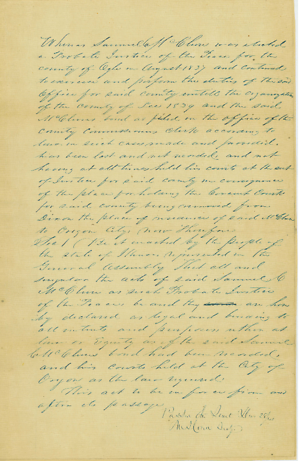 Whereas Samuel C McClure was elected
a Probate Justice of the Peace for the
county of Ogle in August 1837 and continued
to exercise and perform the duties of the said
Office for said county untill the organization
of the County of Lee 1839 and the said
McClures bond as filed in the office of the
county commissioners clerk according to
law in such case made and provided
has been lost and not recorded, and not
having at all times held his court at the seat
of Justice for said county in consequence
of the place for holding the Circuit Courts
for said county being removed from
Dixon the place of residence of said McClure
to Oregon City, Now Therefore
Sec 1 Be it enacted by the People of
the State of Illinois represented in the
General Assembly That all and
singular the acts of said Samuel C
McClure as such Probate Justice
of the Peace be and they are here
by declared as legal and binding to
all intents and purposes either at
law or Equity as if the said Samuel
C McClures bond had been recorded
and his courts held at the City of
Oregon as the law required
This act to be in force from and
after its passage